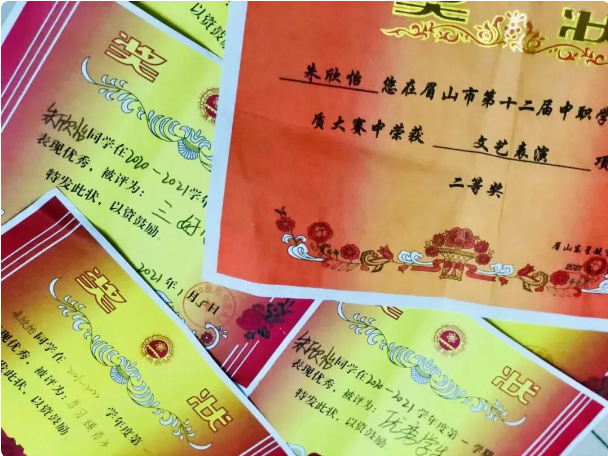 以资鼓励
奖状
朱欣怡 您在眉山市第十二届中职学
质大赛中荣获 文艺表演 项
二等奖
眉山东星
2021
奖
朱欣怡同学在2020-2021学年
表现优秀，被评为：三好
特发此状，以资鼓励。
2021年1月5日
奖状
朱欣怡同学在 学年度第一
表现优秀，被评为：学习
发此状，以资鼓励
状
朱欣怡同学在2020-2021学年度第一学期
表现优秀，被评为：优秀学生
特发此状，以资鼓励